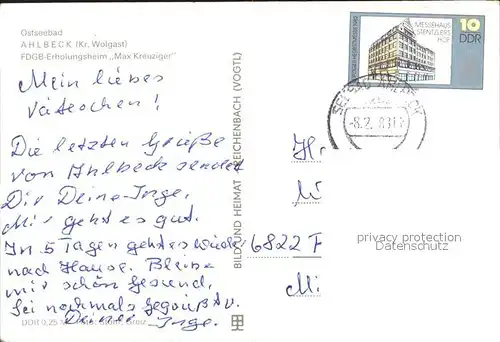 Ostseebad
AHLBECK (Kr. Wolgast)
FDGB-Erholungsheim „Max Kreuziger"
Mein liebes
Väterchen!
Die letzten Grüße
von Ahlbeck sendet
Dir Deine Inge,
Mir geht es gut.
In 5 Tagen geht es wieder
nach Hause. Bleibe
mir schön gesund,
Sei nochmals gegrüßt v.
Deiner Inge.
DDR 0,25 M
BILD UND HEIMAT REICHENBACH (VOGTL)
MESSEHAUS
STENTZLERS
HOF
10
DDR
SEEBAD AHLBECK
-8.2.83
H
6822 F
privacy protection
Datenschutz